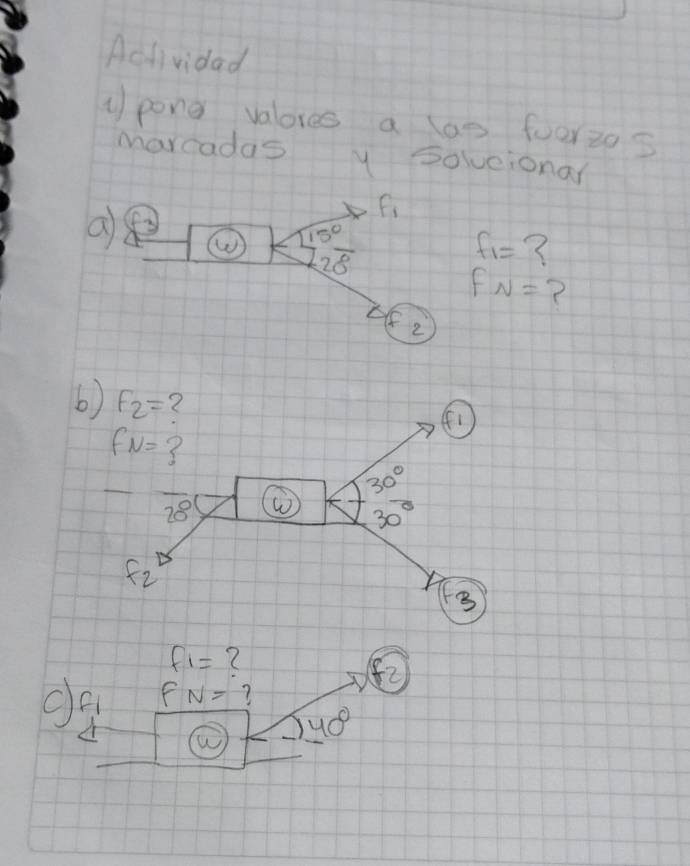 Actividad
1) pone valores a las fuerzas
marcadas y solucionar
a) f3 W f1
15°
28°
f2
f1 = ?
fN = ?
b) f2 = ?
fN = ?
f1
30°
30°
W
28°
f2
f3
f1 = ?
fN = ?
f2
c) f1
W
40°